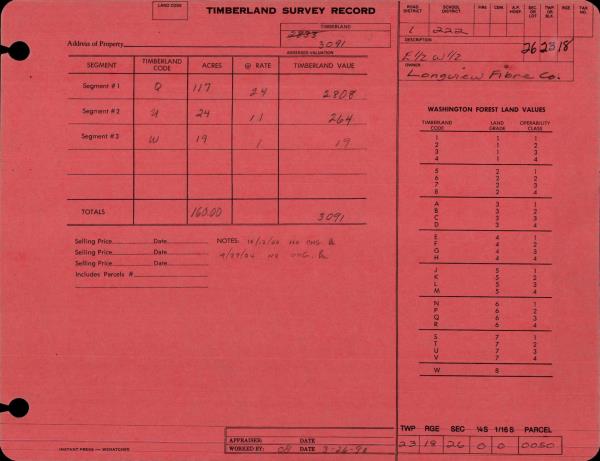 LAND CODE
TIMBERLAND SURVEY RECORD
TIMBERLAND
3091
Address of Property
ASSESSED VALUATION
SEGMENT TIMBERLAND CODE ACRES @ RATE TIMBERLAND VAUE
Segment #1 Q 117 24 2808
Segment #2 U 24 11 264
Segment #3 W 19 1 19
TOTALS 160.00 3091
Selling Price Date NOTES: NO CHG.
Selling Price Date NO CHG.
Selling Price Date
Includes Parcels #
ROAD DISTRICT SCHOOL DISTRICT FIRE CEM. A.P. HOSP. SEC. OR LOT TWP OR BLK RGE TAX NO.
1 222
DESCRIPTION
26 23 18
E 1/2 W 1/2
OWNER
Longview Fibre Co.
WASHINGTON FOREST LAND VALUES
TIMBERLAND CODE LAND GRADE OPERABILITY CLASS
1 1 1
2 1 2
3 1 3
4 1 4
5 2 1
6 2 2
7 2 3
8 2 4
A 3 1
B 3 2
C 3 3
D 3 4
E 4 1
F 4 2
G 4 3
H 4 4
J 5 1
K 5 2
L 5 3
M 5 4
N 6 1
P 6 2
Q 6 3
R 6 4
S 7 1
T 7 2
U 7 3
V 7 4
W 8
TWP RGE SEC ¼S 1/16S PARCEL
23 18 26 0 0 0050
APPRAISER: DATE
WORKED BY: DATE 3-26-90
INSTANT PRESS — WENATCHEE